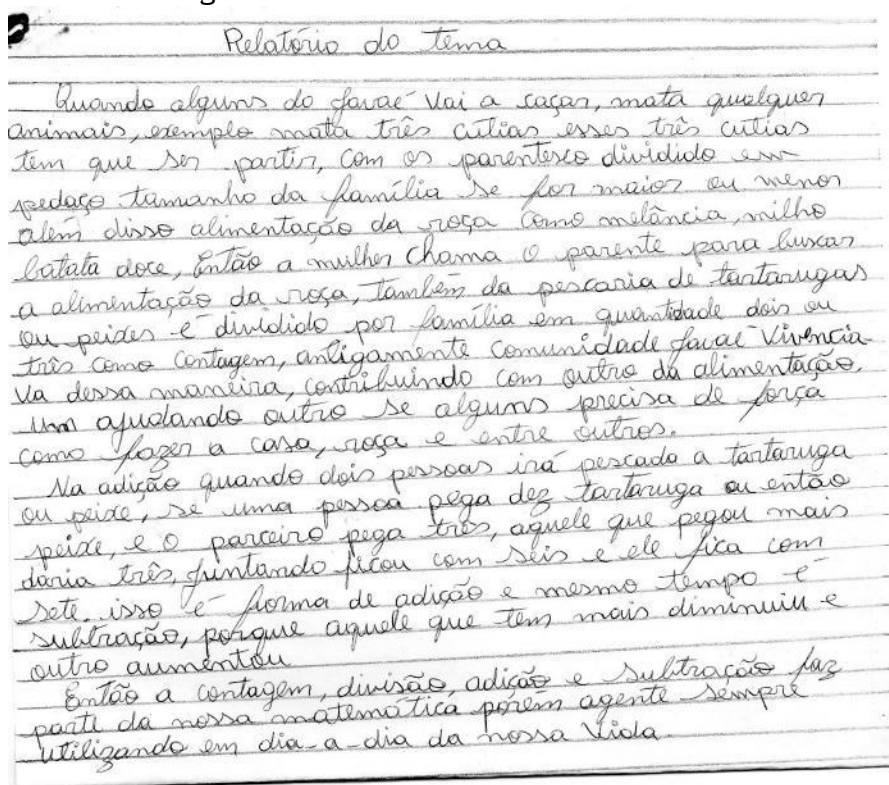 Relatório do tema
Quando alguns do Javaé vai a caçar, mata qualquer
animais, exemplo mata três cutias esses três cutias
tem que ser partir, com os parentesco dividido em
pedaço tamanho da família se for maior ou menor
além disso alimentação da roça como melância, milho
batata doce, Então a mulher chama o parente para buscar
a alimentação da roça, também da pescaria de tartarugas
ou peixes é dividido por família em quantidade dois ou
três como contagem, antigamente comunidade Javaé vivencia
va dessa maneira, contribuindo com outro da alimentação.
um ajudando outro se alguns precisa de força
como fazer a casa, roça e entre outros.
Na adição quando dois pessoas irá pescado a tartaruga
ou peixe, se uma pessoa pega dez tartaruga ou então
peixe, e o parceiro pega três, aquele que pegou mais
daria três, juntando ficou com seis e ele fica com
sete. isso é forma de adição e mesmo tempo é
subtração, porque aquele que tem mais diminuiu e
outro aumentou
Então a contagem, divisão, adição e subtração faz
parte da nossa matemática porém agente sempre
utilizando em dia-a-dia da nossa vida.